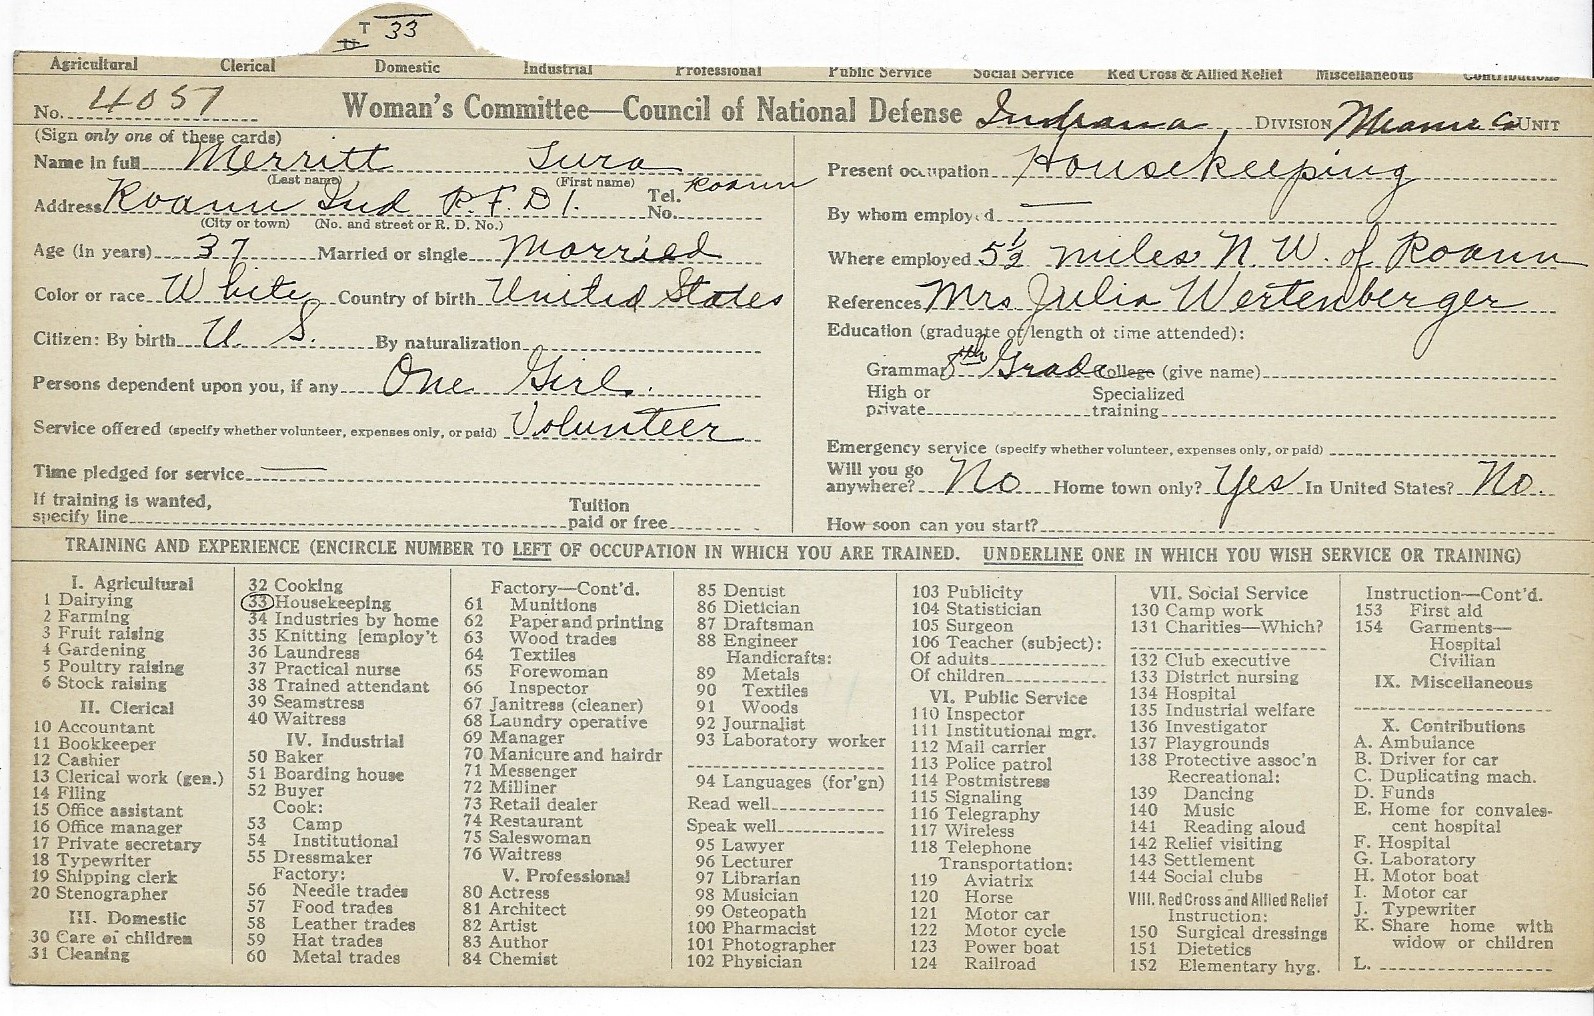 T 33
Agricultural Clerical Domestic Industrial Professional Public Service Social Service Red Cross & Allied Relief Miscellaneous Contributions
No. 4057 Woman's Committee—Council of National Defense Indiana, DIVISION Miami Co UNIT
(Sign only one of these cards)
Name in full Merritt Tura
(Last name) (First name)
Address Roann Ind R.F.D 1. Tel. No. Roann
(City or town) (No. and street or R. D. No.)
Age (in years) 37 Married or single Married
Color or race White Country of birth United States
Citizen: By birth U. S. By naturalization
Persons dependent upon you, if any One Girl.
Service offered (specify whether volunteer, expenses only, or paid) Volunteer
Time pledged for service —
If training is wanted, specify line Tuition paid or free
Present occupation Housekeeping
By whom employed —
Where employed 5½ miles N. W. of Roann
References Mrs Julia Wertenberger
Education (graduate or length of time attended):
Grammar 8th Grade College (give name)
High or private Specialized training
Emergency service (specify whether volunteer, expenses only, or paid)
Will you go anywhere? No Home town only? Yes In United States? No.
How soon can you start?
TRAINING AND EXPERIENCE (ENCIRCLE NUMBER TO LEFT OF OCCUPATION IN WHICH YOU ARE TRAINED. UNDERLINE ONE IN WHICH YOU WISH SERVICE OR TRAINING)
I. Agricultural
1 Dairying
2 Farming
3 Fruit raising
4 Gardening
5 Poultry raising
6 Stock raising
II. Clerical
10 Accountant
11 Bookkeeper
12 Cashier
13 Clerical work (gen.)
14 Filing
15 Office assistant
16 Office manager
17 Private secretary
18 Typewriter
19 Shipping clerk
20 Stenographer
III. Domestic
30 Care of children
31 Cleaning
32 Cooking
33 Housekeeping
34 Industries by home
35 Knitting [employ't
36 Laundress
37 Practical nurse
38 Trained attendant
39 Seamstress
40 Waitress
IV. Industrial
50 Baker
51 Boarding house
52 Buyer
Cook:
53 Camp
54 Institutional
55 Dressmaker
Factory:
56 Needle trades
57 Food trades
58 Leather trades
59 Hat trades
60 Metal trades
Factory—Cont'd.
61 Munitions
62 Paper and printing
63 Wood trades
64 Textiles
65 Forewoman
66 Inspector
67 Janitress (cleaner)
68 Laundry operative
69 Manager
70 Manicure and hairdr
71 Messenger
72 Milliner
73 Retail dealer
74 Restaurant
75 Saleswoman
76 Waitress
V. Professional
80 Actress
81 Architect
82 Artist
83 Author
84 Chemist
85 Dentist
86 Dietician
87 Draftsman
88 Engineer
Handicrafts:
89 Metals
90 Textiles
91 Woods
92 Journalist
93 Laboratory worker
94 Languages (for'gn)
Read well
Speak well
95 Lawyer
96 Lecturer
97 Librarian
98 Musician
99 Osteopath
100 Pharmacist
101 Photographer
102 Physician
103 Publicity
104 Statistician
105 Surgeon
106 Teacher (subject):
Of adults
Of children
VI. Public Service
110 Inspector
111 Institutional mgr.
112 Mail carrier
113 Police patrol
114 Postmistress
115 Signaling
116 Telegraphy
117 Wireless
118 Telephone
Transportation:
119 Aviatrix
120 Horse
121 Motor car
122 Motor cycle
123 Power boat
124 Railroad
VII. Social Service
130 Camp work
131 Charities—Which?
132 Club executive
133 District nursing
134 Hospital
135 Industrial welfare
136 Investigator
137 Playgrounds
138 Protective assoc'n
Recreational:
139 Dancing
140 Music
141 Reading aloud
142 Relief visiting
143 Settlement
144 Social clubs
VIII. Red Cross and Allied Relief
Instruction:
150 Surgical dressings
151 Dietetics
152 Elementary hyg.
Instruction—Cont'd.
153 First aid
154 Garments—
Hospital
Civilian
IX. Miscellaneous
X. Contributions
A. Ambulance
B. Driver for car
C. Duplicating mach.
D. Funds
E. Home for convales-
cent hospital
F. Hospital
G. Laboratory
H. Motor boat
I. Motor car
J. Typewriter
K. Share home with
widow or children
L.